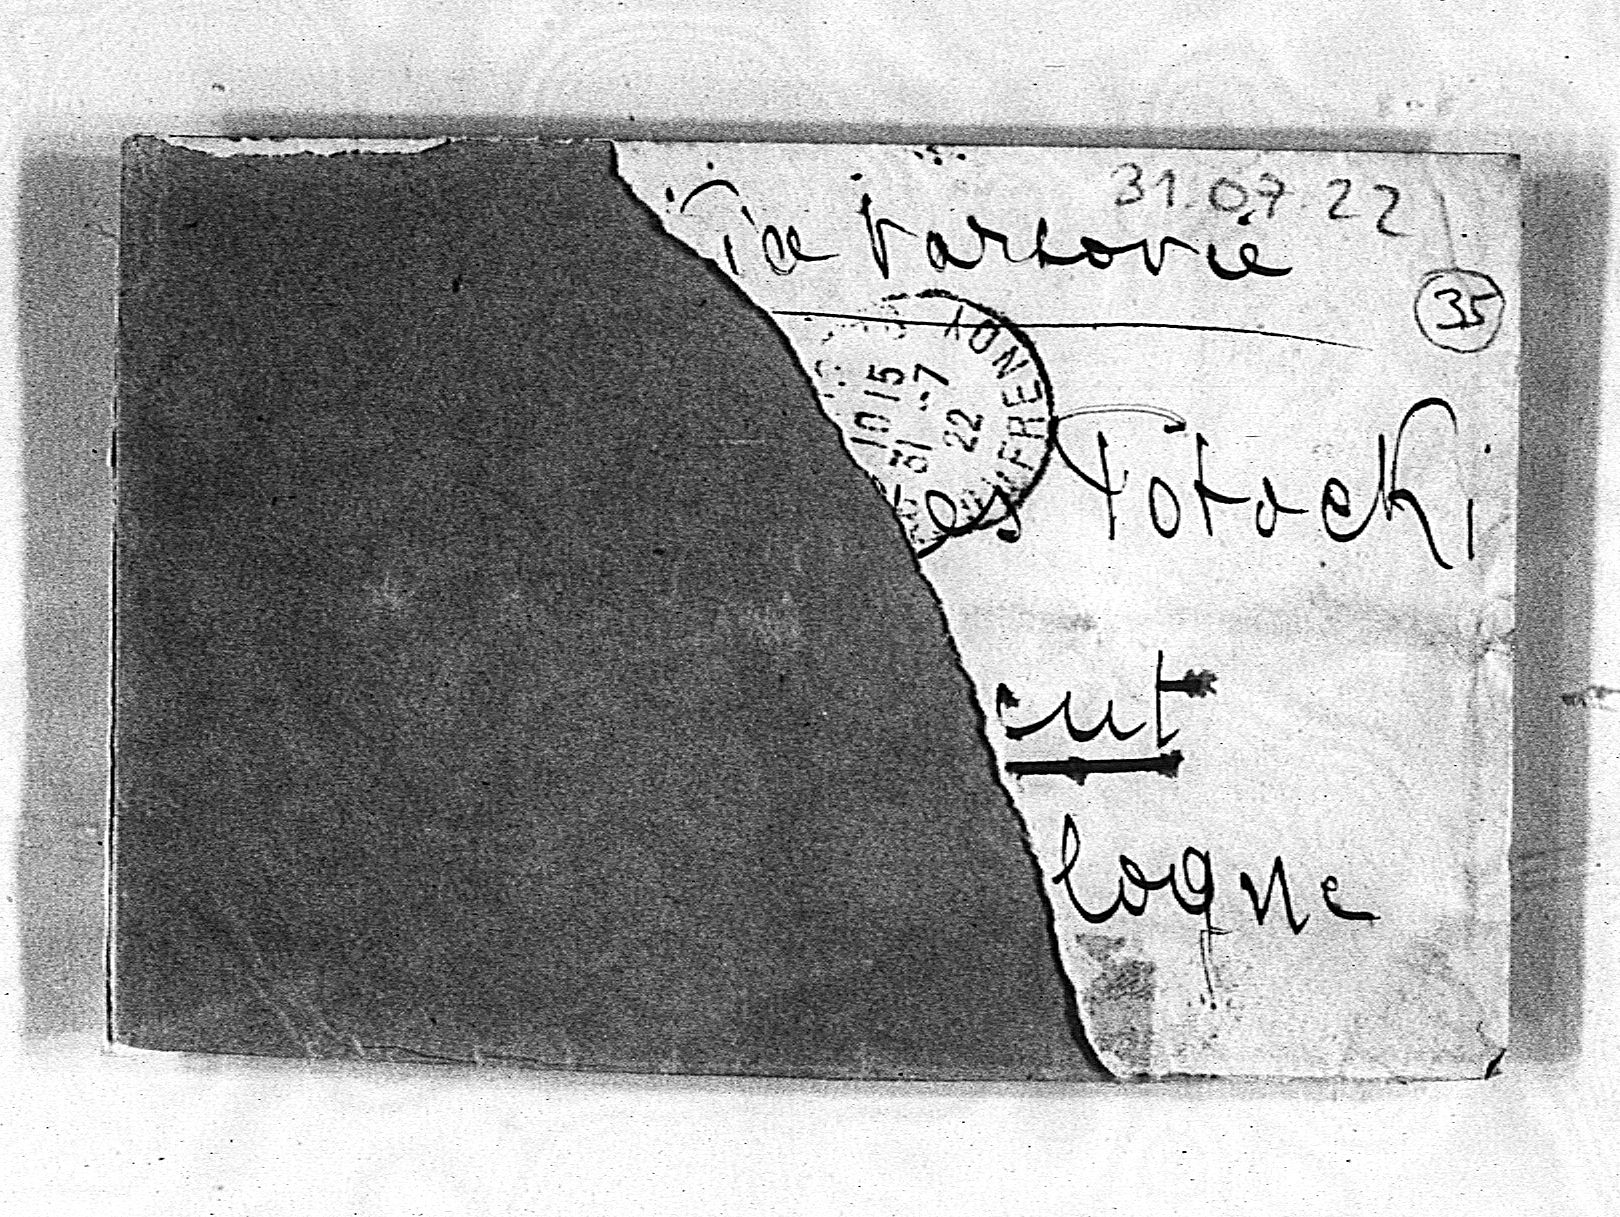 31.07.22
Via Varsovie
35
10 15
31 -7
22
es Potocki
cut
logne